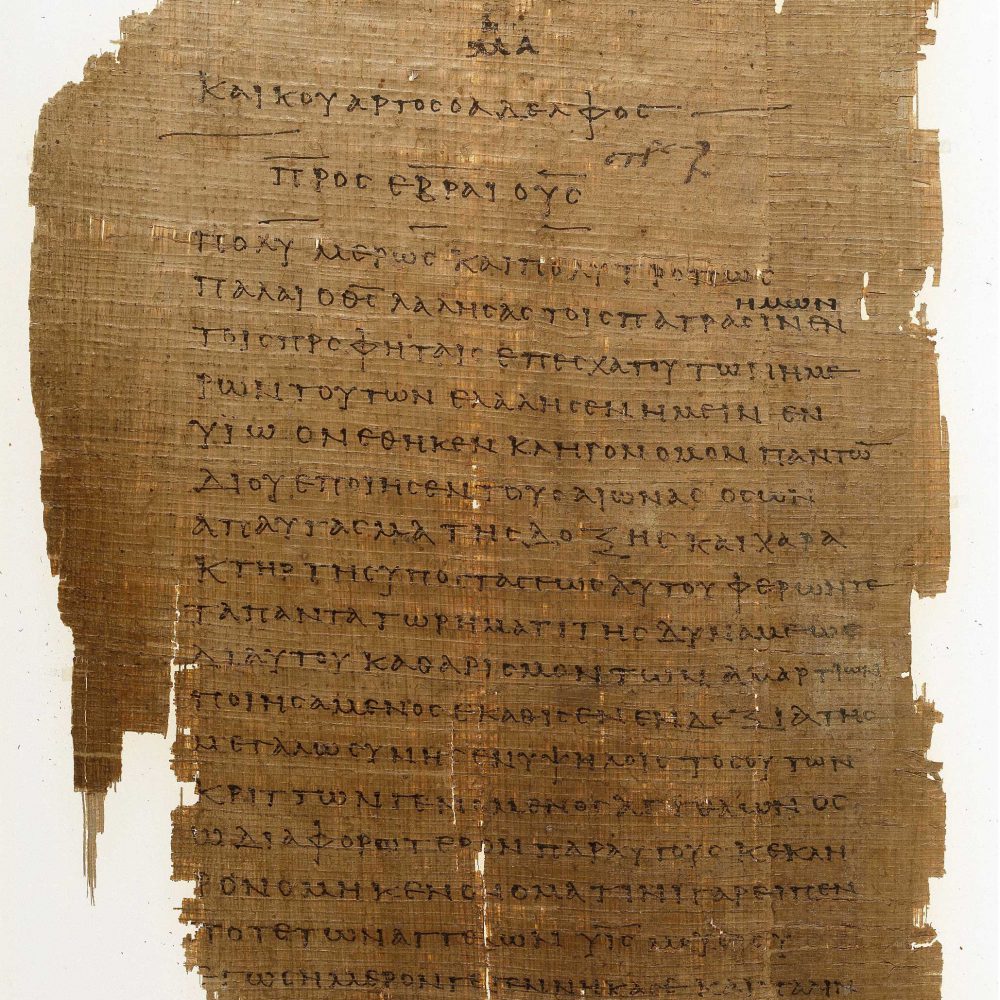 ΜΑ
ΚΑΙ ΚΟΥΑΡΤΟϹ Ο ΑΔΕΛΦΟϹ
ΠΡΟϹ ΕΒΡΑΙΟΥϹ
ΠΟΛΥΜΕΡΩϹ ΚΑΙ ΠΟΛΥΤΡΟΠΩϹ
ΗΜΩΝ
ΠΑΛΑΙ Ο Θ̅Ϲ̅ ΛΑΛΗϹΑϹ ΤΟΙϹ ΠΑΤΡΑϹΙΝ ΕΝ
ΤΟΙϹ ΠΡΟΦΗΤΑΙϹ ΕΠ ΕϹΧΑΤΟΥ ΤΩΝ ΗΜΕ
ΡΩΝ ΤΟΥΤΩΝ ΕΛΑΛΗϹΕΝ ΗΜΕΙΝ ΕΝ
ΥΪΩ ΟΝ ΕΘΗΚΕΝ ΚΛΗΡΟΝΟΜΟΝ ΠΑΝΤΩ̅
ΔΙ ΟΥ ΕΠΟΙΗϹΕΝ ΤΟΥϹ ΑΙΩΝΑϹ ΟϹ ΩΝ
ΑΠΑΥΓΑϹΜΑ ΤΗϹ ΔΟΞΗϹ ΚΑΙ ΧΑΡΑ
ΚΤΗΡ ΤΗϹ ΥΠΟϹΤΑϹΕΩϹ ΑΥΤΟΥ ΦΕΡΩΝ ΤΕ
ΤΑ ΠΑΝΤΑ ΤΩ ΡΗΜΑΤΙ ΤΗϹ ΔΥΝΑΜΕΩϹ
ΔΙ ΑΥΤΟΥ ΚΑΘΑΡΙϹΜΟΝ ΤΩΝ ΑΜΑΡΤΙΩΝ
ΠΟΙΗϹΑΜΕΝΟϹ ΕΚΑΘΙϹΕΝ ΕΝ ΔΕΞΙΑ ΤΗϹ
ΜΕΓΑΛΩϹΥΝΗϹ ΕΝ ΥΨΗΛΟΙϹ ΤΟϹΟΥΤΩΝ
ΚΡΙΤΤΩΝ ΓΕΝΟΜΕΝΟϹ ΑΓΓΕΛΩΝ ΟϹ
Ω ΔΙΑΦΟΡΩΤΕΡΟΝ ΠΑΡ ΑΥΤΟΥϹ ΚΕΚΛΗ
ΡΟΝΟΜΗΚΕΝ ΟΝΟΜΑ ΤΙΝΙ ΓΑΡ ΕΙΠΕΝ
ΠΟΤΕ ΤΩΝ ΑΓΓΕΛΩΝ Υ̅Ι̅Ϲ̅ ΜΟΥ ΕΙ ϹΥ
ΕΓΩ ϹΗΜΕΡΟΝ ΓΕΓΕΝΝΗΚΑ ϹΕ ΚΑΙ ΠΑΛΙΝ